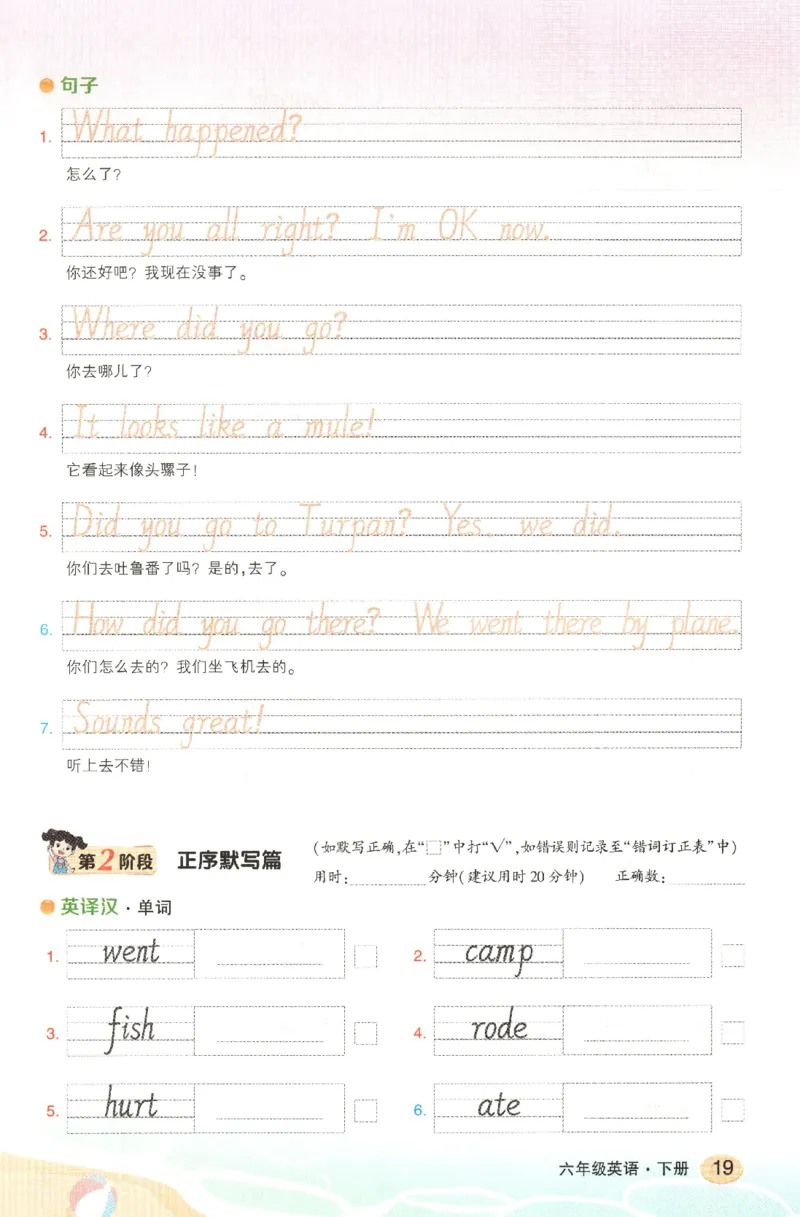 句子
1. What happened?
怎么了?
2. Are you all right? I'm OK now.
你还好吧? 我现在没事了。
3. Where did you go?
你去哪儿了?
4. It looks like a mule!
它看起来像头骡子!
5. Did you go to Turpan? Yes, we did.
你们去吐鲁番了吗? 是的,去了。
6. How did you go there? We went there by plane.
你们怎么去的? 我们坐飞机去的。
7. Sounds great!
听上去不错!
第2阶段 正序默写篇 (如默写正确,在“□”中打“√”,如错误则记录至“错词订正表”中)
用时: 分钟(建议用时20分钟) 正确数:
英译汉·单词
1. went 2. camp
3. fish 4. rode
5. hurt 6. ate
六年级英语·下册 19